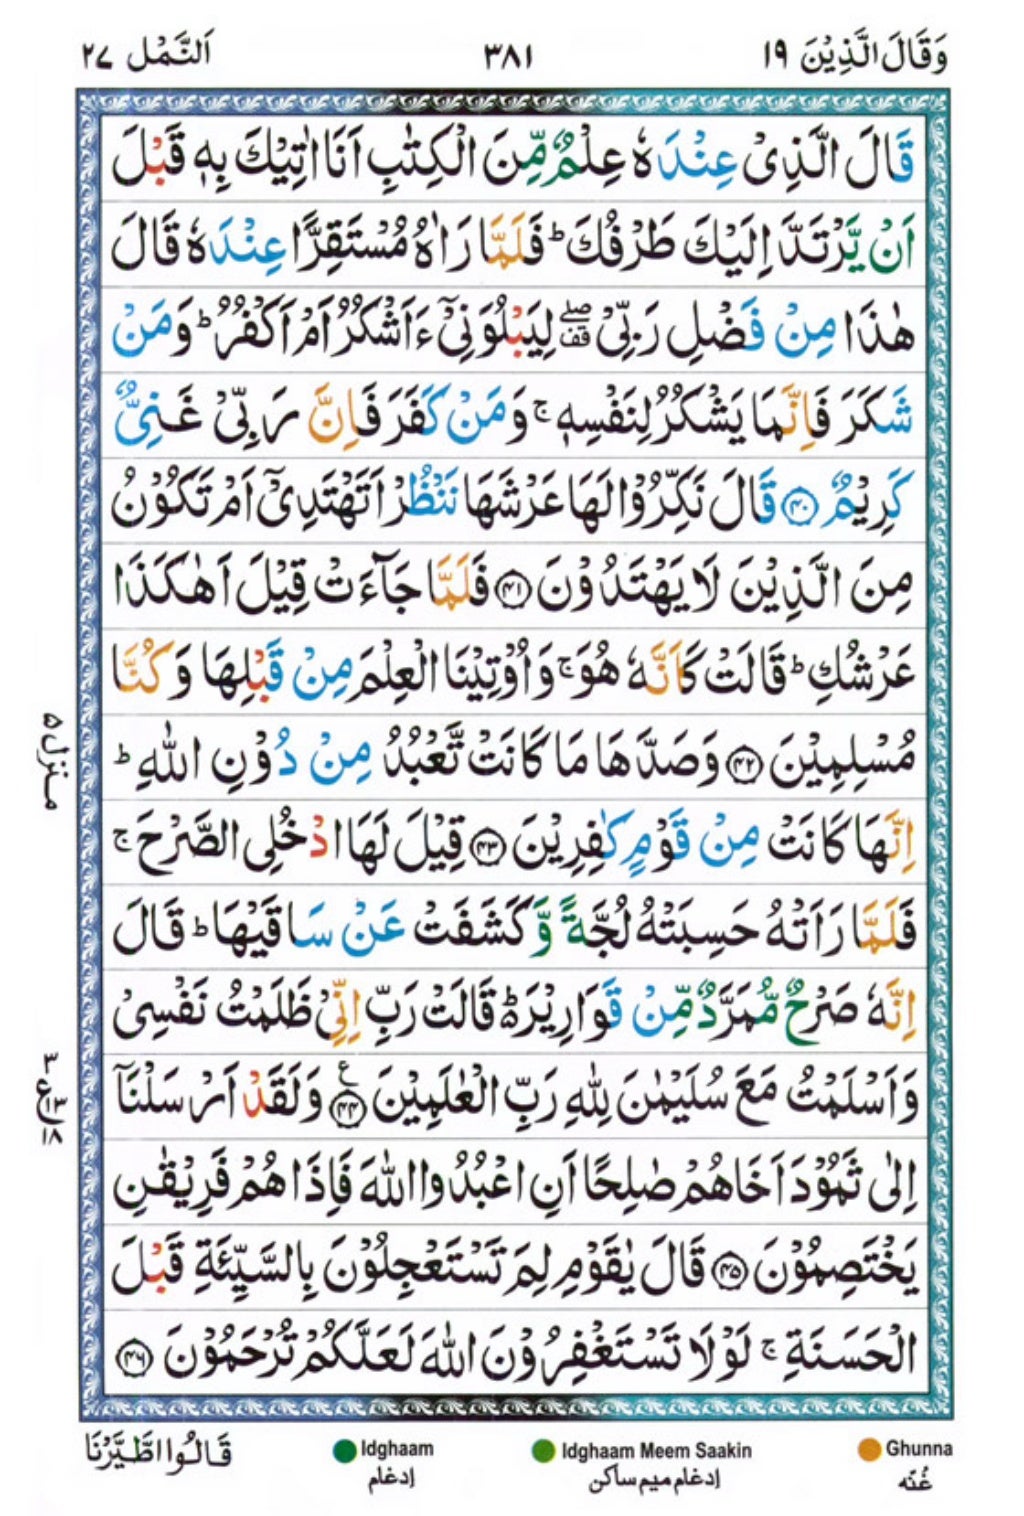 وَقَالَ الَّذِیْنَ ۱۹
۳۸۱
اَلنَّمْل ۲۷
قَالَ الَّذِیْ عِنْدَهٗ عِلْمٌ مِّنَ الْكِتٰبِ اَنَا اٰتِیْكَ بِهٖ قَبْلَ
اَنْ یَّرْتَدَّ اِلَیْكَ طَرْفُكَ ؕ فَلَمَّا رَاٰهُ مُسْتَقِرًّا عِنْدَهٗ قَالَ
هٰذَا مِنْ فَضْلِ رَبِّیْ ۫ۖ لِیَبْلُوَنِیْۤ ءَاَشْكُرُ اَمْ اَكْفُرُ ؕ وَمَنْ
شَكَرَ فَاِنَّمَا یَشْكُرُ لِنَفْسِهٖ ۚ وَمَنْ كَفَرَ فَاِنَّ رَبِّیْ غَنِیٌّ
كَرِیْمٌ ﴿۴۰﴾ قَالَ نَكِّرُوْا لَهَا عَرْشَهَا نَنْظُرْ اَتَهْتَدِیْۤ اَمْ تَكُوْنُ
مِنَ الَّذِیْنَ لَا یَهْتَدُوْنَ ﴿۴۱﴾ فَلَمَّا جَآءَتْ قِیْلَ اَهٰكَذَا
عَرْشُكِ ؕ قَالَتْ كَاَنَّهٗ هُوَ ۚ وَاُوْتِیْنَا الْعِلْمَ مِنْ قَبْلِهَا وَكُنَّا
مُسْلِمِیْنَ ﴿۴۲﴾ وَصَدَّهَا مَا كَانَتْ تَّعْبُدُ مِنْ دُوْنِ اللّٰهِ ؕ
اِنَّهَا كَانَتْ مِنْ قَوْمٍ كٰفِرِیْنَ ﴿۴۳﴾ قِیْلَ لَهَا ادْخُلِی الصَّرْحَ ۚ
فَلَمَّا رَاَتْهُ حَسِبَتْهُ لُجَّةً وَّكَشَفَتْ عَنْ سَاقَیْهَا ؕ قَالَ
اِنَّهٗ صَرْحٌ مُّمَرَّدٌ مِّنْ قَوَارِیْرَ ؕ۬ قَالَتْ رَبِّ اِنِّیْ ظَلَمْتُ نَفْسِیْ
وَاَسْلَمْتُ مَعَ سُلَیْمٰنَ لِلّٰهِ رَبِّ الْعٰلَمِیْنَ ﴿۴۴﴾ ع وَلَقَدْ اَرْسَلْنَاۤ
اِلٰی ثَمُوْدَ اَخَاهُمْ صٰلِحًا اَنِ اعْبُدُوا اللّٰهَ فَاِذَا هُمْ فَرِیْقٰنِ
یَخْتَصِمُوْنَ ﴿۴۵﴾ قَالَ یٰقَوْمِ لِمَ تَسْتَعْجِلُوْنَ بِالسَّیِّئَةِ قَبْلَ
الْحَسَنَةِ ۚ لَوْلَا تَسْتَغْفِرُوْنَ اللّٰهَ لَعَلَّكُمْ تُرْحَمُوْنَ ﴿۴۶﴾
منزل ۵
۳
ع ۱۳
۱۸
قَالُوا اطَّیَّرْنَا
Idghaam
إدغام
Idghaam Meem Saakin
إدغام میم ساکن
Ghunna
غُنّه